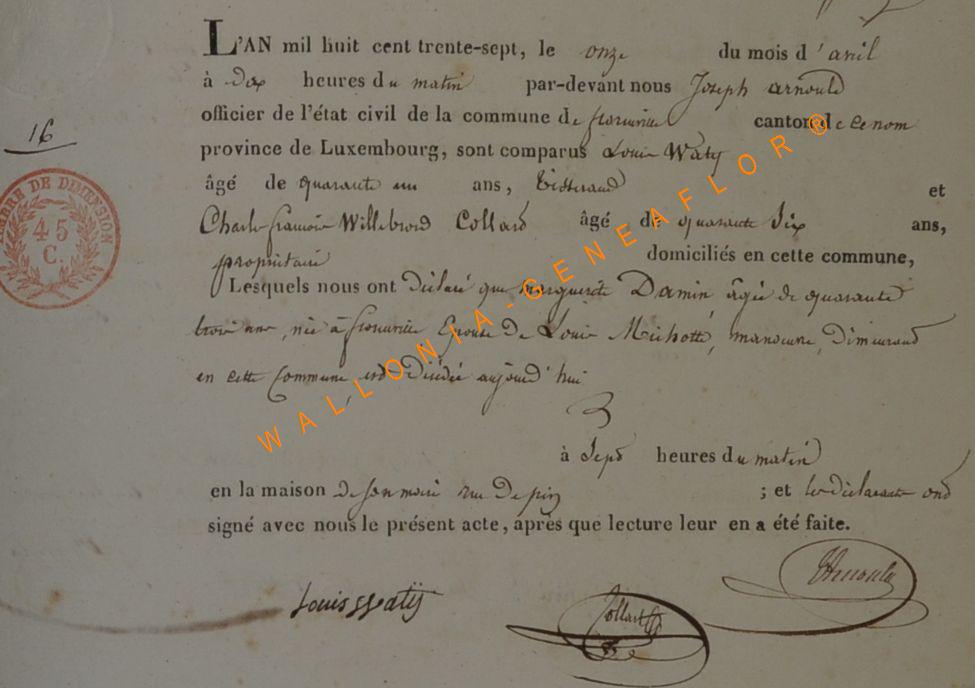 16
L'AN mil huit cent trente-sept, le onze du mois d'avril
à dix heures du matin par-devant nous Joseph arnould
officier de l'état civil de la commune de florenville canton de ce nom
province de Luxembourg, sont comparus Louis Waty
âgé de quarante un ans, tisserand et
Charle françois Willebrord Collard âgé de quarante Six ans,
propriétaire domiciliés en cette commune,
Lesquels nous ont déclaré que marguerite Damin âgée de quarante
trois ans, née à florenville Epouse de Louis Michotte, manoeuvre, demeurand
en cette Commune, est Décédée aujourd'hui
à Sept heures du matin
en la maison de son mari rue ; et les déclarants ont
signé avec nous le présent acte, après que lecture leur en a été faite.
Louis Watÿ Collart Arnould
TIMBRE DE DIMENSION
45
C.
WALLONIA-GENEAFLOR®